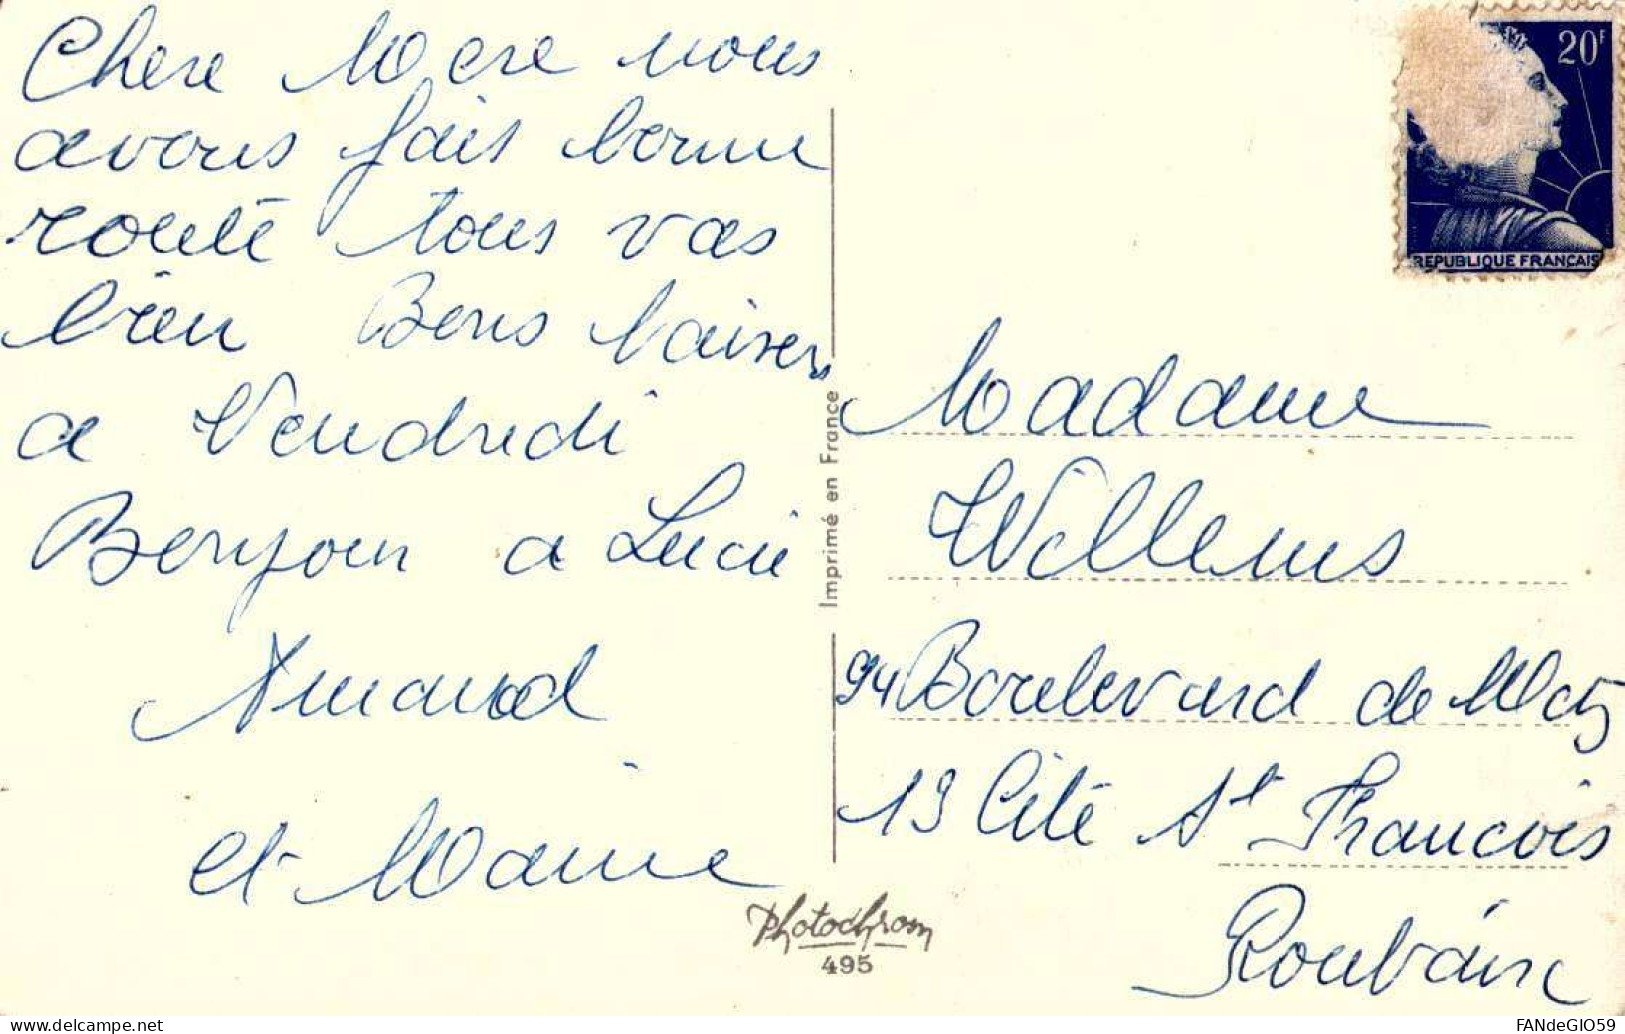 Chere Mere nous
avons fais bonne
route tous vas
bien Bons baisers
a Vendredi
Bonjour a Lucie
Armand
et Marie
20F
REPUBLIQUE FRANCAIS
Imprimé en France
Madame
Willems
94 Boulevard de Metz
19 Cité St Francois
Roubaix
Photochrom
495
FANdeGIO59